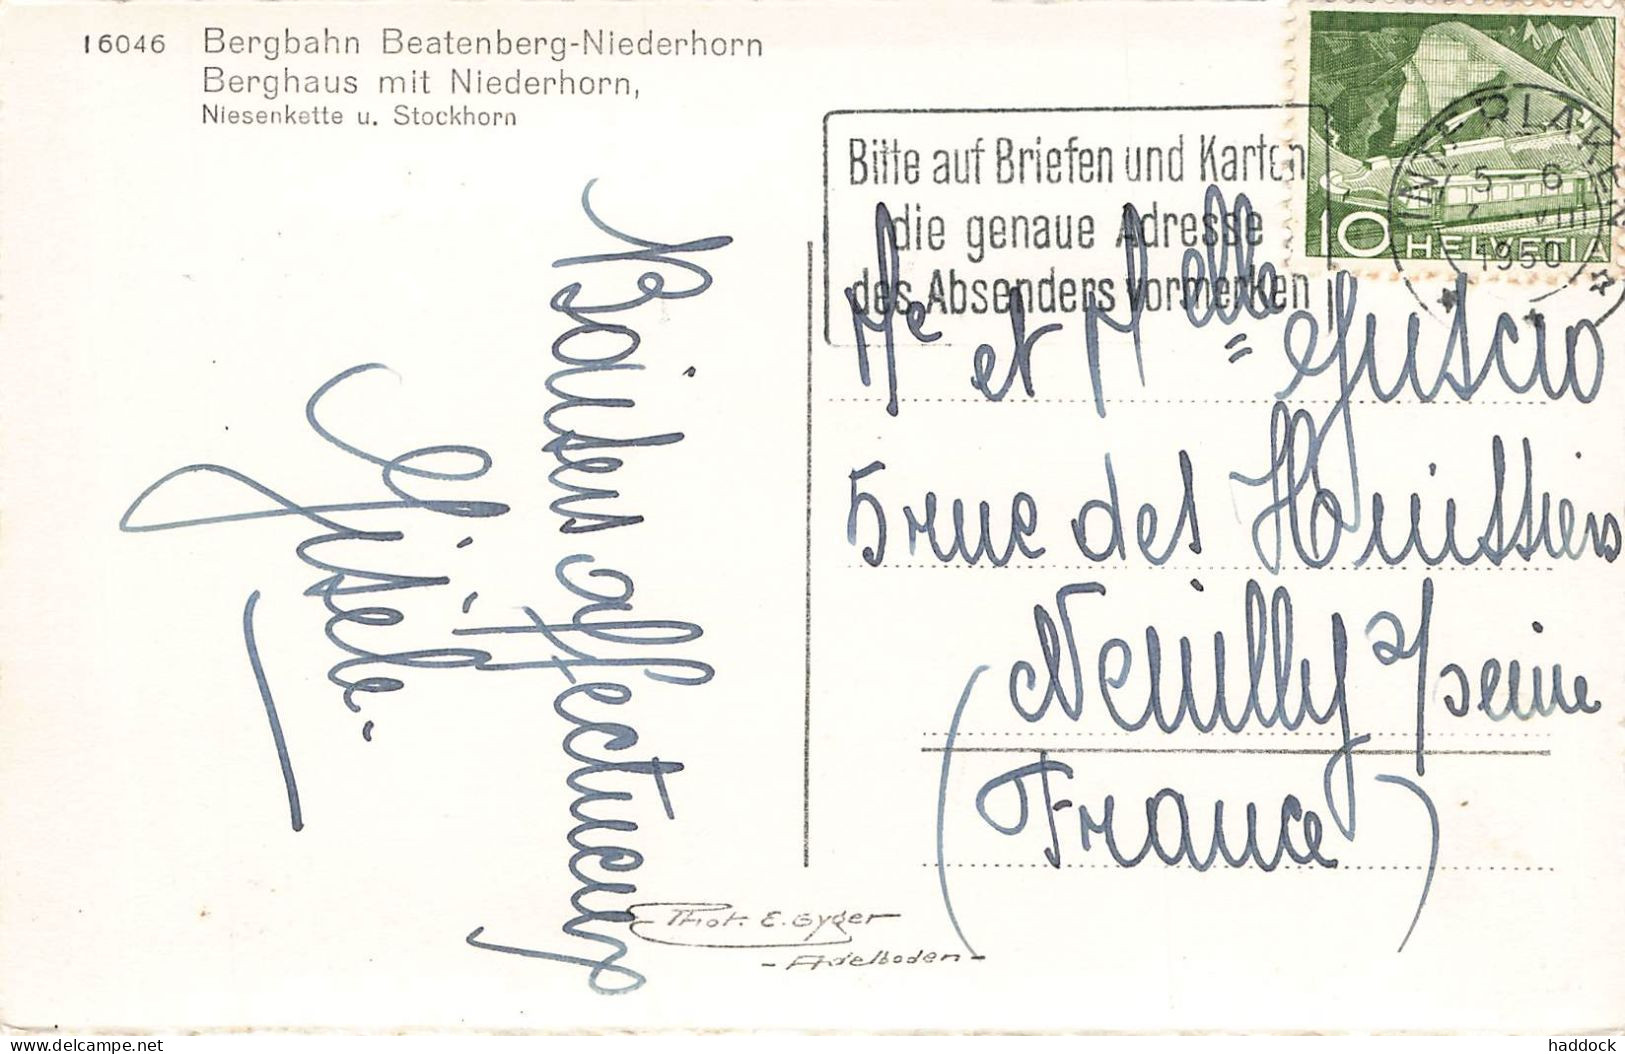 16046 Bergbahn Beatenberg-Niederhorn
Berghaus mit Niederhorn,
Niesenkette u. Stockhorn
Bitte auf Briefen und Karten
die genaue Adresse
des Absenders vormerken
INTERLAKEN
5-6
VIII
1950
10 HELVETIA
Baisers affectueux
Gisele.
Me et Melle Guscio
5 rue des Huissiers
Neuilly s/seine
(France)
Phot. E. Gyger
- Adelboden -
delcampe.net
haddock